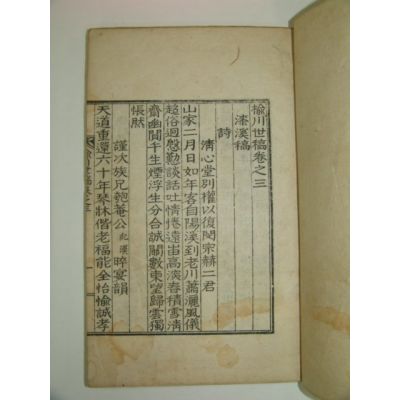 楡川世稿卷之三
漆溪稿
詩
清心堂別權以復閔宗赫二君
山家二月日如年客自陽溪到老川蕭灑風儀
超俗迥慇勤談話吐情悁遠峀高淡春積雪清
齋幽閴午生煙浮生分合誠關數東望歸雲獨
悵然
謹次族兄匏菴公此漢晬宴韻
天道重還六十年琴牀偕老福能全怡愉誠孝